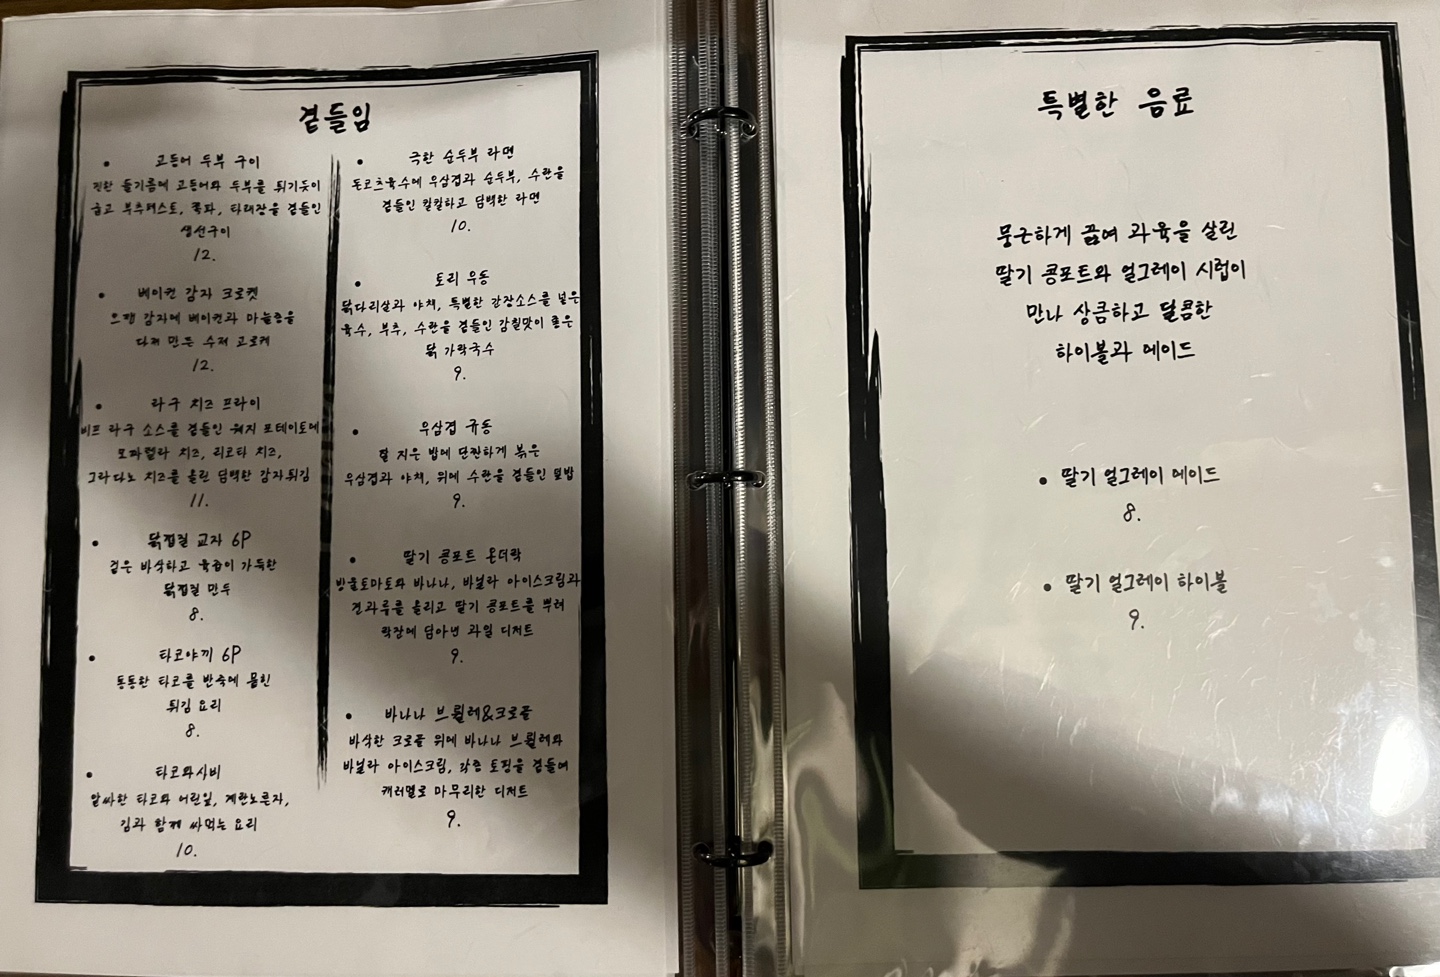 곁들임
고등어 두부 구이
진한 들기름에 고등어와 두부를 튀기듯이
굽고 부추페스토, 쪽파, 타래장을 곁들인
생선구이
12.
베이컨 감자 크로켓
으깬 감자에 베이컨과 마늘종을
다져 만든 수제 고로케
12.
라구 치즈 프라이
비프 라구 소스를 곁들인 웨지 포테이토에
모짜렐라 치즈, 리코타 치즈,
그라다노 치즈를 올린 담백한 감자튀김
11.
닭껍질 교자 6P
겉은 바삭하고 육즙이 가득한
닭껍질 만두
8.
타코야끼 6P
통통한 타코를 반죽에 묻힌
튀김 요리
8.
타코와사비
알싸한 타코와 어린잎, 계란노른자,
김과 함께 싸먹는 요리
10.
극한 순두부 라면
돈코츠육수에 우삼겹과 순두부, 수란을
곁들인 칼칼하고 담백한 라면
10.
토리 우동
닭다리살과 야채, 특별한 간장소스를 넣은
육수, 부추, 수란을 곁들인 감칠맛이 좋은
닭 가락국수
9.
우삼겹 규동
갓 지은 밥에 단짠하게 볶은
우삼겹과 야채, 위에 수란을 곁들인 덮밥
9.
딸기 콩포트 온더락
방울토마토와 바나나, 바닐라 아이스크림과
견과루를 올리고 딸기 콩포트를 뿌려
락잔에 담아낸 과일 디저트
9.
바나나 브륄레&크로플
바삭한 크로플 위에 바나나 브륄레와
바닐라 아이스크림, 각종 토핑을 곁들여
캐러멜로 마무리한 디저트
9.
특별한 음료
뭉근하게 끓여 과육을 살린
딸기 콩포트와 얼그레이 시럽이
만나 상큼하고 달콤한
하이볼과 에이드
딸기 얼그레이 에이드
8.
딸기 얼그레이 하이볼
9.